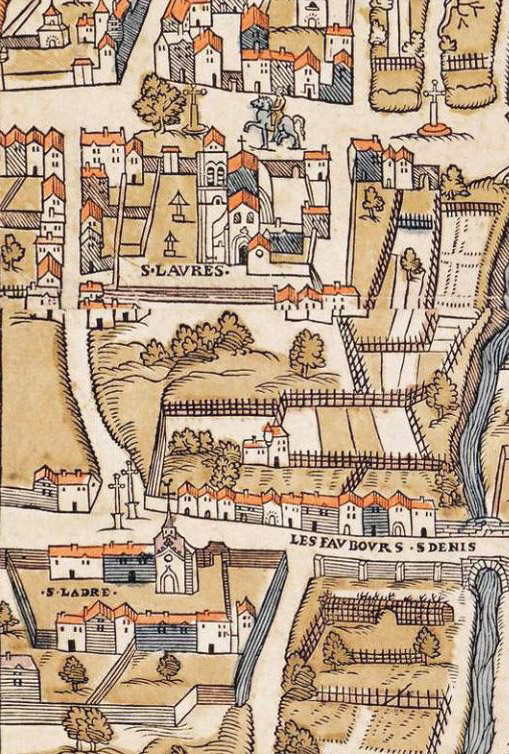 S·LAVRES·
LES FAVBOVRS·SDENIS
·S·LADRE·